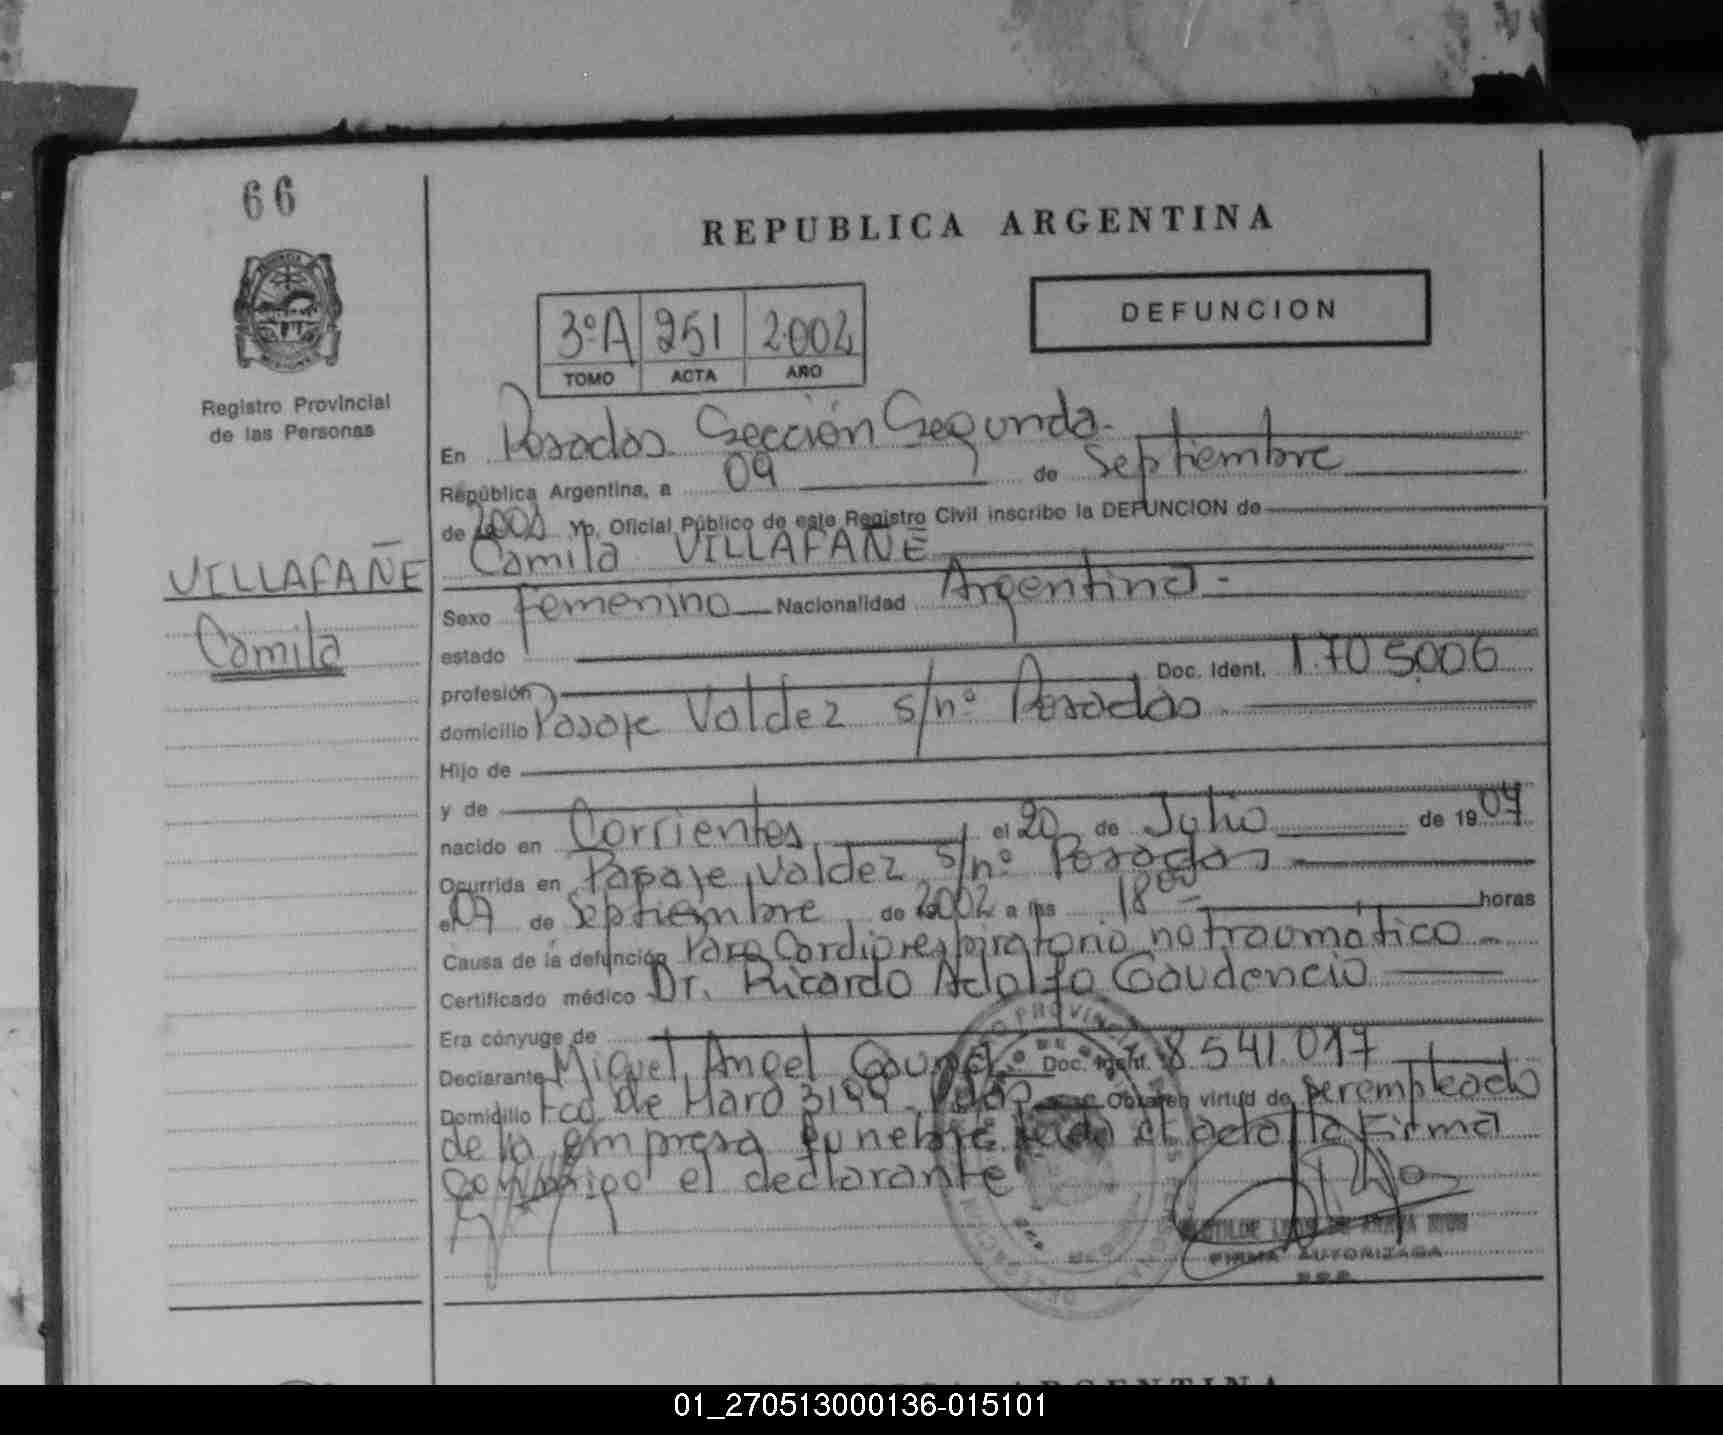 66
REPUBLICA ARGENTINA
DEFUNCION
3ºA 251 2002
TOMO ACTA AÑO
Registro Provincial
de las Personas
En Posadas Sección Segunda.
República Argentina, a 09 de Septiembre
de 2002 yo, Oficial Público de este Registro Civil inscribo la DEFUNCION de
VILLAFAÑE
Camila
Camila VILLAFAÑE
Sexo Femenino Nacionalidad Argentina-
estado
profesión Doc. Ident. 1.705.006
domicilio Pasaje Valdez s/nº Posadas
Hijo de
y de
nacido en Corrientes, el 20 de Julio de 1907
Ocurrida en Pasaje Valdez s/nº Posadas
el 07 de Septiembre de 2002 a las 18 00 horas
Causa de la defunción Paro Cardiorespiratorio no traumatico-
Certificado médico Dr. Ricardo Adolfo Gaudencio
Era cónyuge de
Declarante Miguel Angel Doc. Ident. 8.541.017
Domicilio Fco de Haro 3199 Obra en virtud de ser empleado
de la empresa funebre el acta la Firma
conmigo el declarante
FIRMA AUTORIZADA
01_270513000136-015101